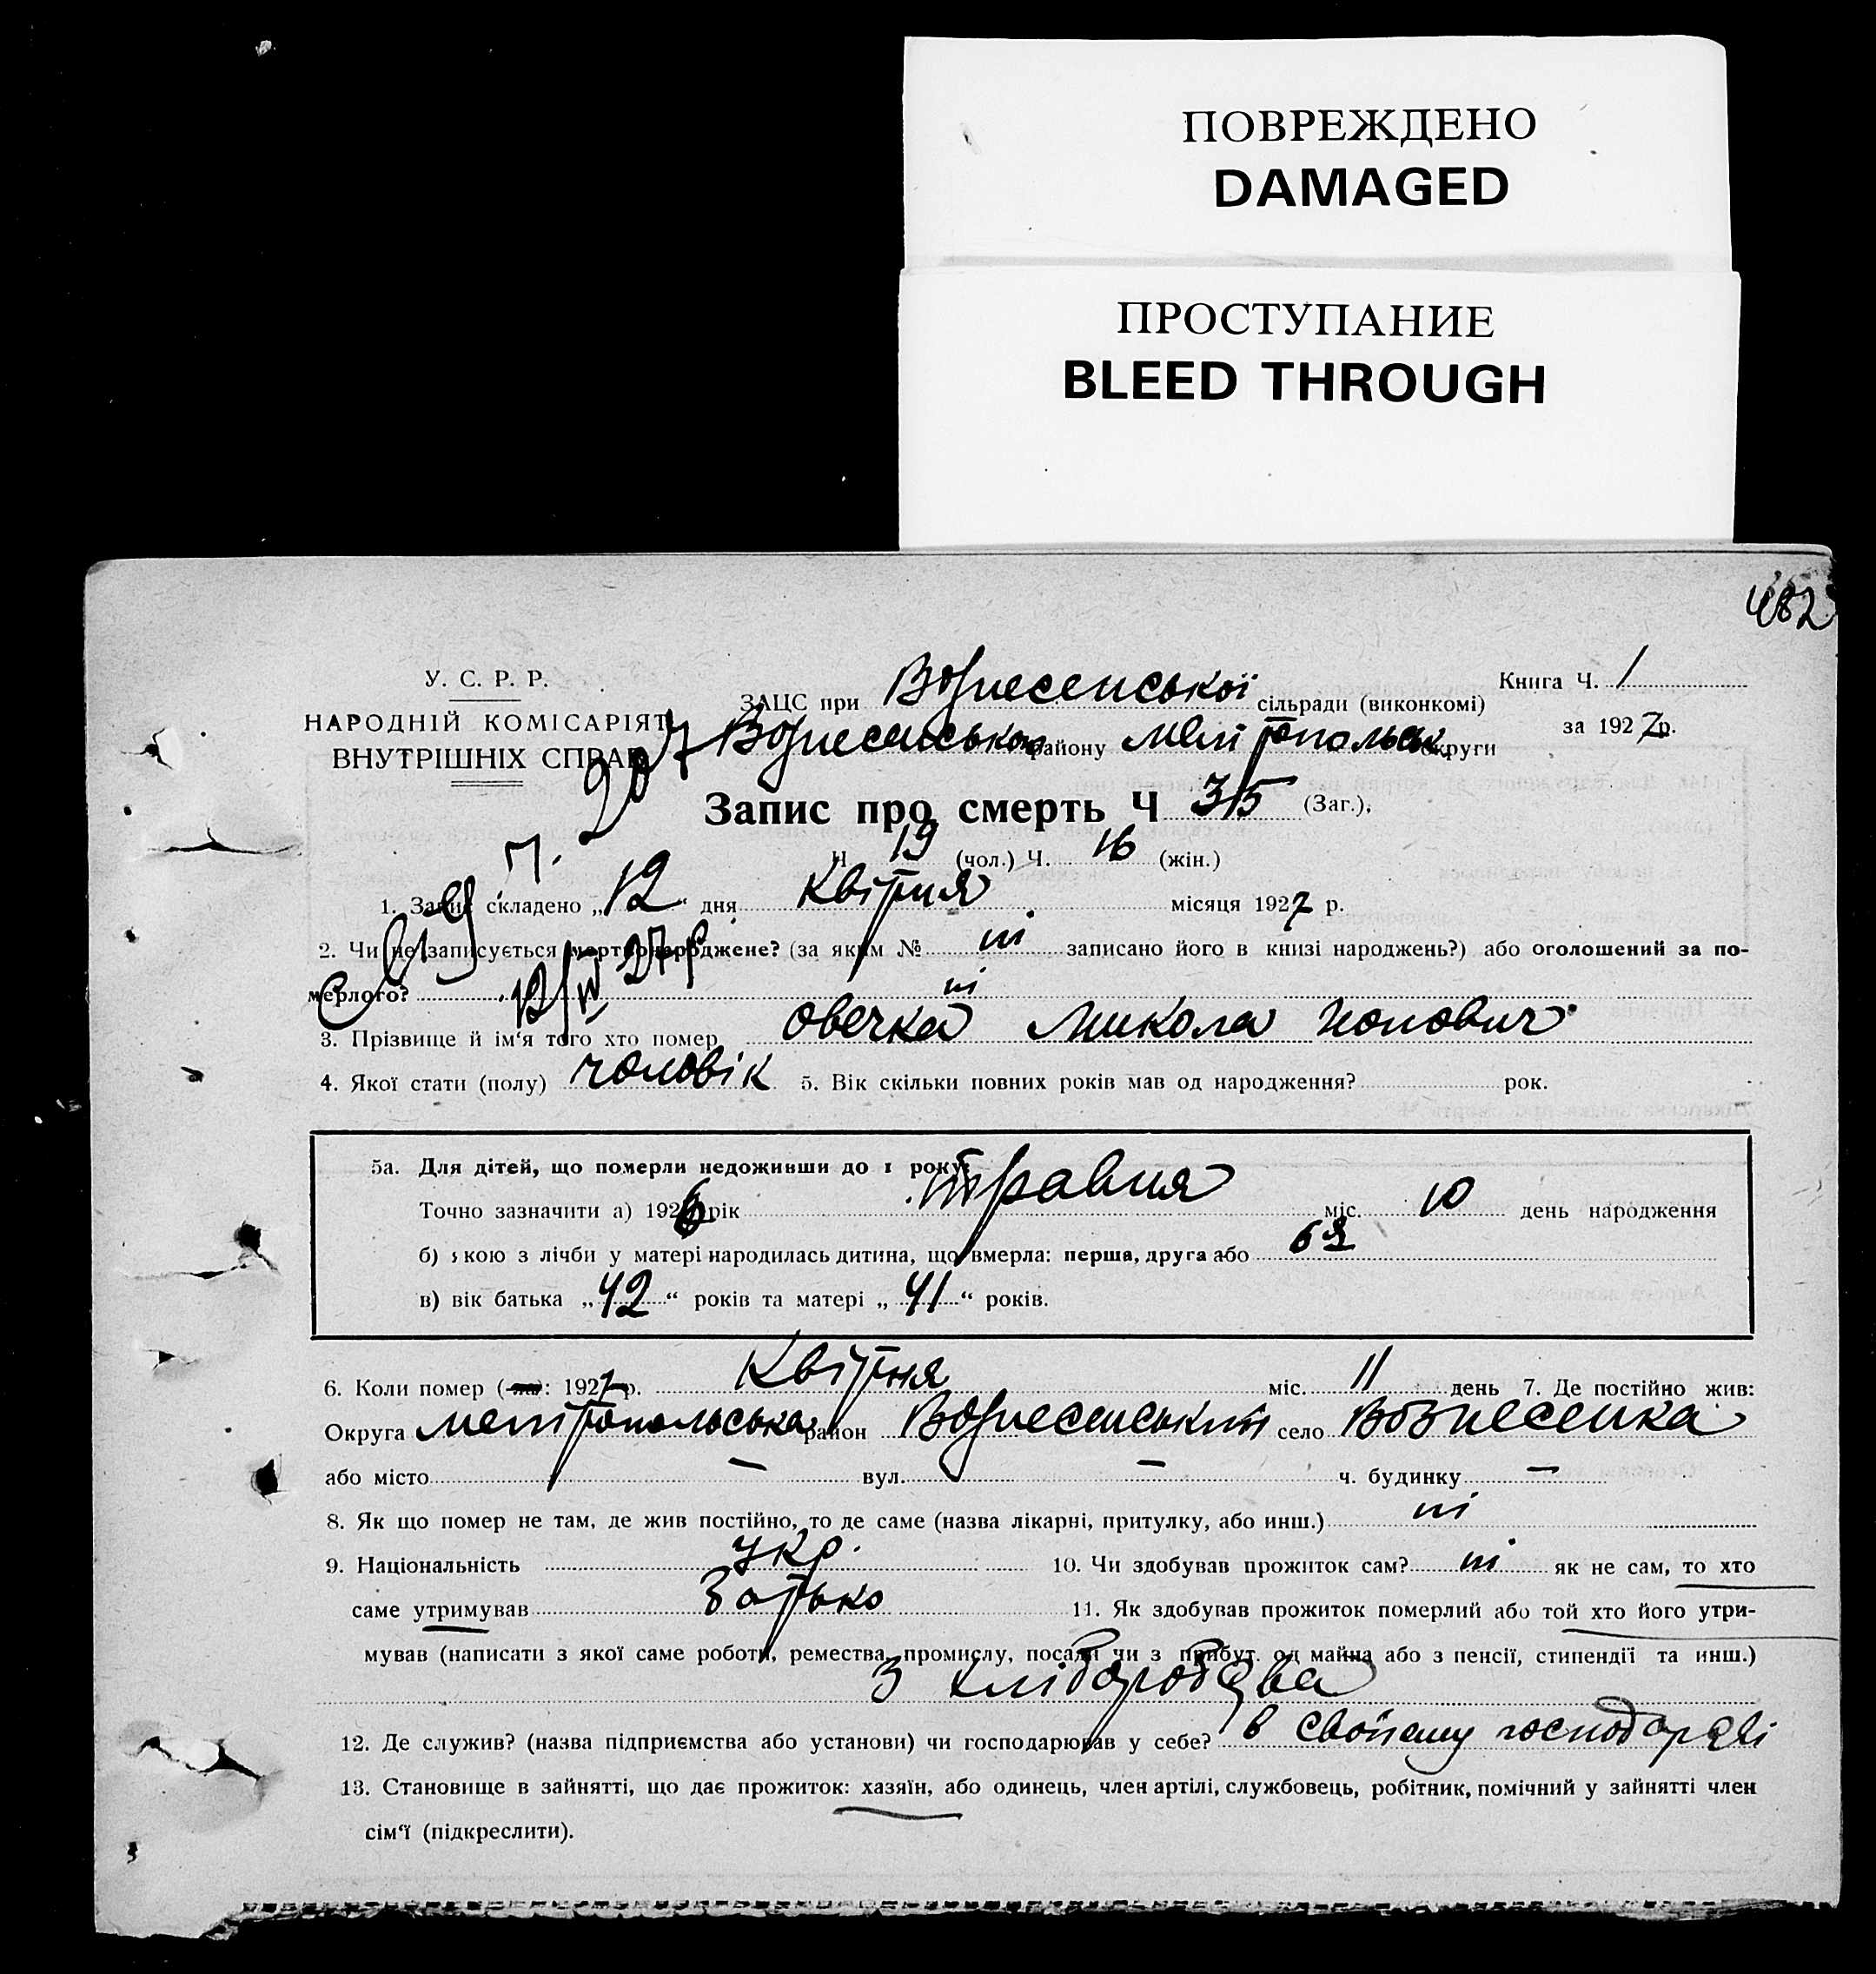 ПОВРЕЖДЕНО
DAMAGED
ПРОСТУПАНИЕ
BLEED THROUGH
482
У. С. Р. Р.
НАРОДНІЙ КОМІСАРІЯТ
ВНУТРІШНІХ СПРАВ
Книга Ч. 1
за 1927 р.
ЗАЦС при Вознесенської сільради (виконкомі)
Вознесенського району Мелітопольськ округи
Запис про смерть Ч 35 (Заг.),
Ч 19 (чол.) Ч. 16 (жін.)
1. Запис складено „12“ дня квітня місяця 1927 р.
2. Чи не записується мертвонароджене? (за яким № ні записано його в книзі народжень?) або оголошений за по-
мерлого? ні
12/IV 27 р
3. Прізвище й ім'я того хто помер Овечка Микола
4. Якої стати (полу) чоловік 5. Вік скільки повних років мав од народження? рок.
5а. Для дітей, що померли недоживши до 1 року:
Точно зазначити а) 1926 рік травня міс. 10 день народження
б) якою з лічби у матері народилась дитина, що вмерла: перша, друга або 6я
в) вік батька „42“ років та матері „41“ років.
6. Коли помер (ла): 1927 р. Квітня міс. 11 день 7. Де постійно жив:
Округа Мелітопольська район Вознесенський село Вознесенка
або місто — вул. — ч. будинку —
8. Як що помер не там, де жив постійно, то де саме (назва лікарні, притулку, або инш.) ні
9. Національність укр. 10. Чи здобував прожиток сам? ні як не сам, то хто
саме утримував батько 11. Як здобував прожиток померлий або той хто його утри-
мував (написати з якої саме роботи, ремества, промислу, посади чи з прибут. од майна або з пенсії, стипендії та инш.)
З хліборобства
12. Де служив? (назва підприємства або установи) чи господарював у себе? в своїему господарстві
13. Становище в зайнятті, що дає прожиток: хазяїн, або одинець, член артілі, службовець, робітник, помічний у зайнятті член
сім'ї (підкреслити).